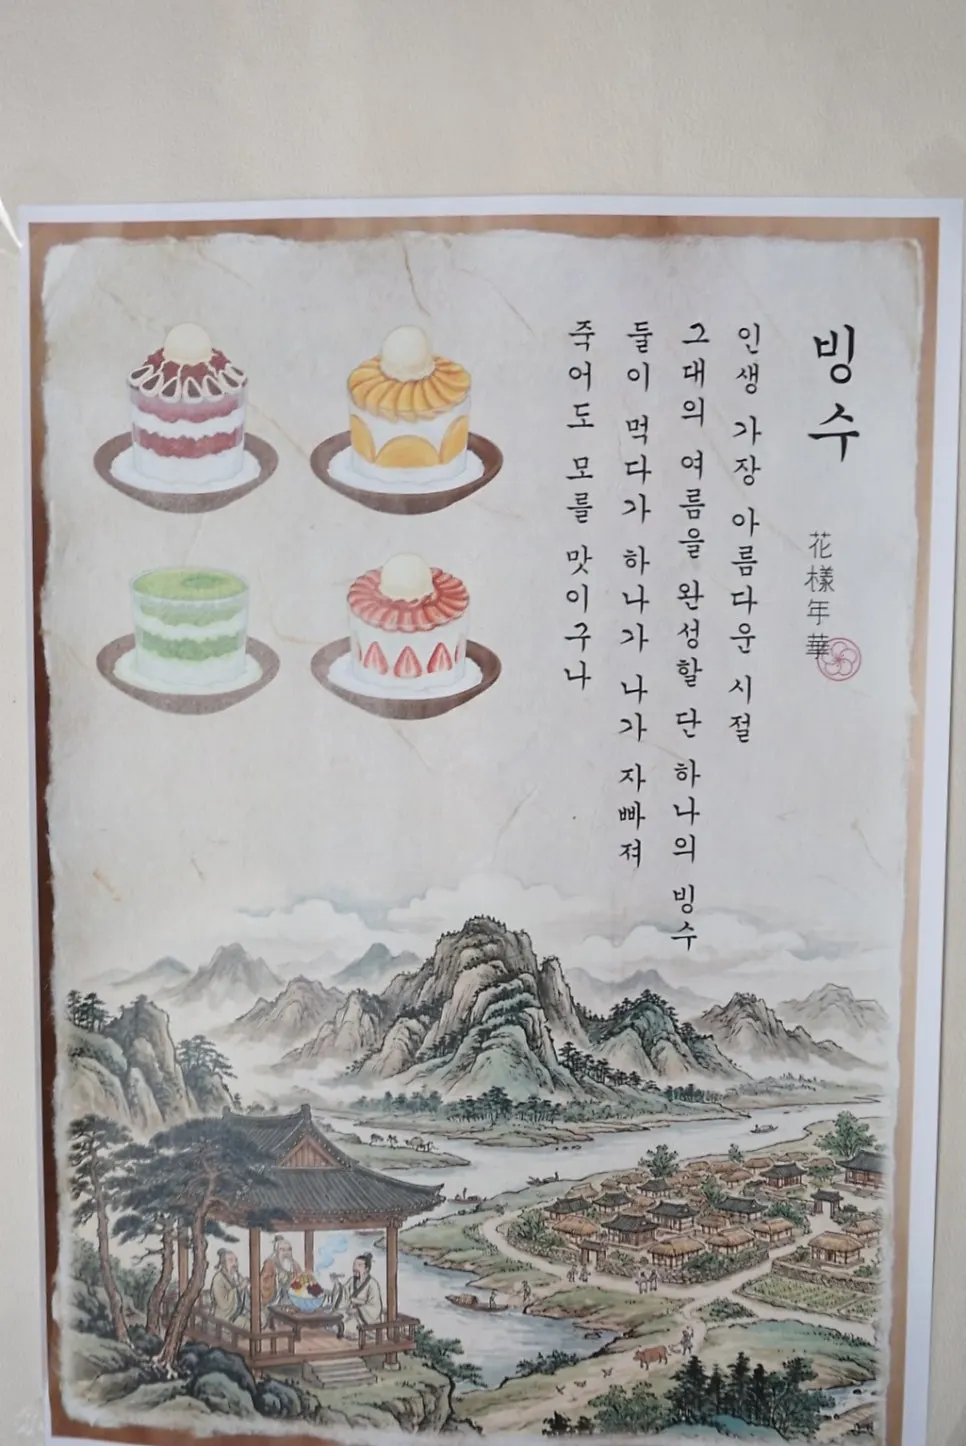 빙수
花樣年華
인생 가장 아름다운 시절
그대의 여름을 완성할 단 하나의 빙수
둘이 먹다가 하나가 나가 자빠져
죽어도 모를 맛이구나